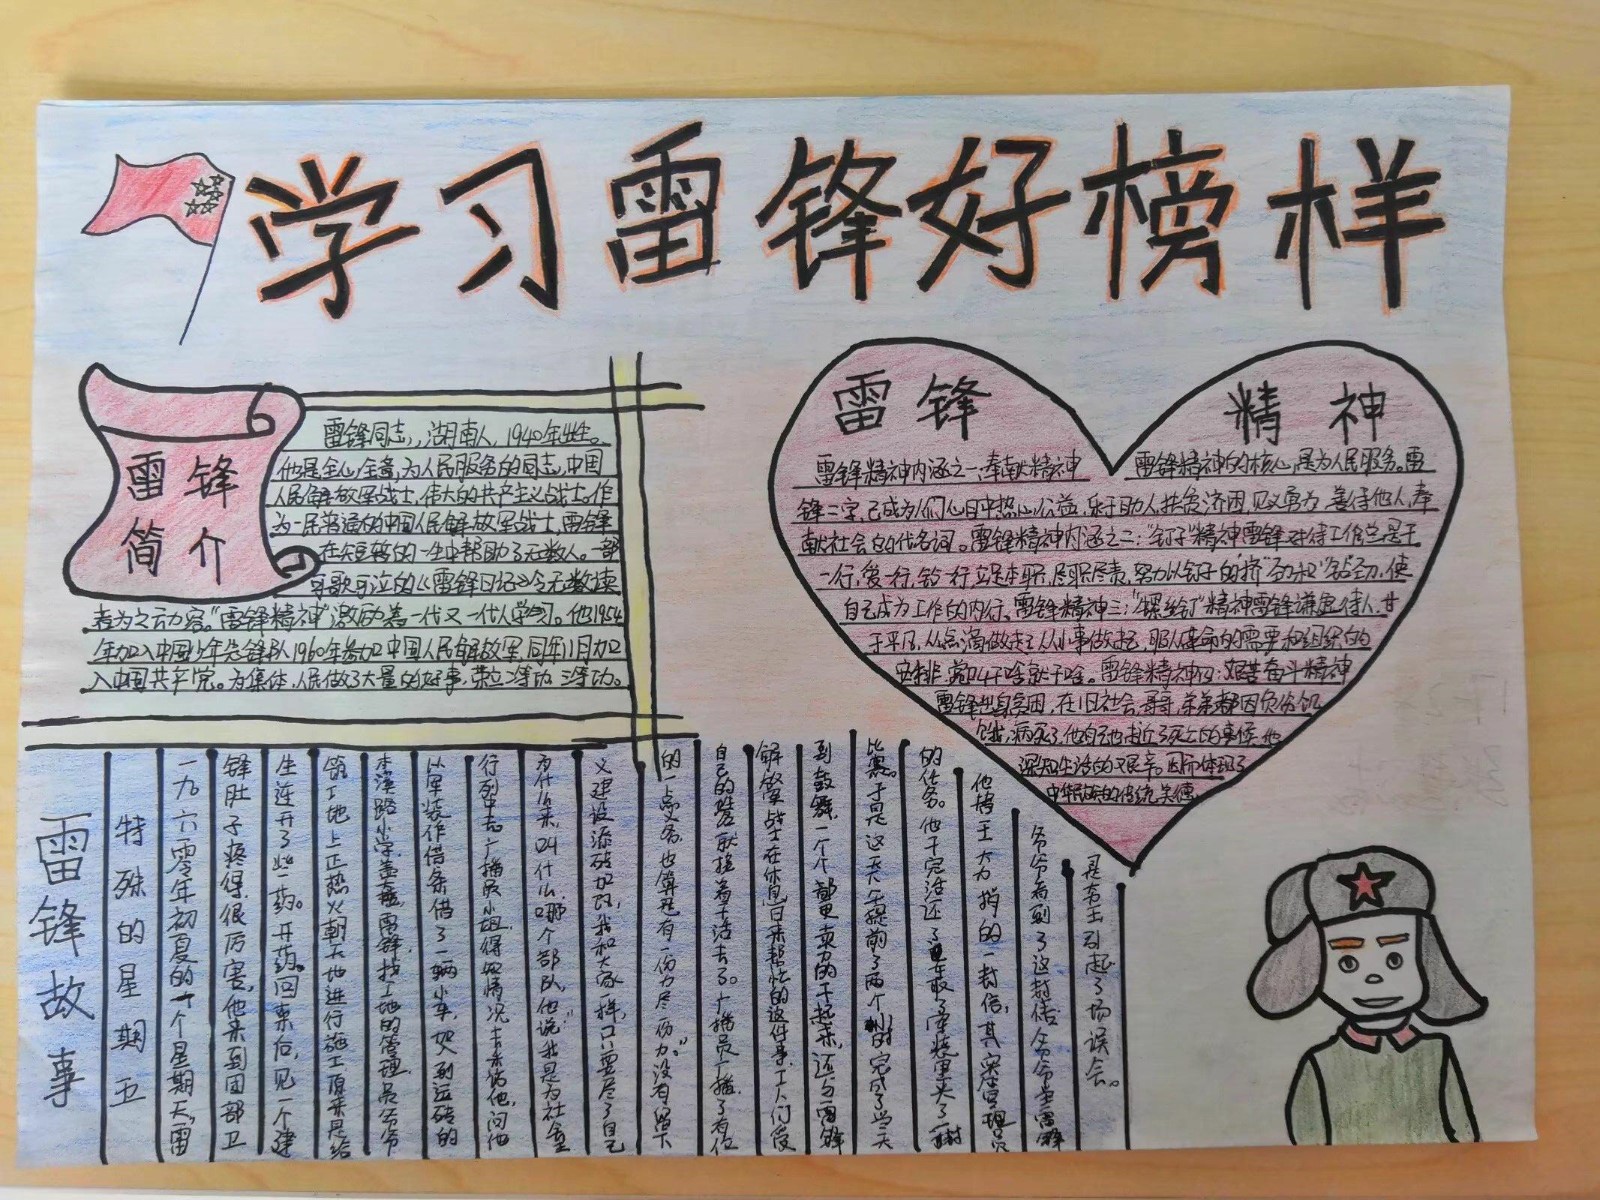 学习雷锋好榜样
雷锋
简介
雷锋同志,湖南人,1940年出生。
他是全心全意,为人民服务的同志,中国
人民解放军战士,伟大的共产主义战士。作
为一民普通的中国人民解放军战士,雷锋
在短暂的一生中帮助了无数人。一部
可歌可泣的《雷锋日记》令无数读
者为之动容。"雷锋精神"激励着一代又一代人学习。他1954
年加入中国少年先锋队1960年参加中国人民解放军,同年11月加
入中国共产党。为集体,人民做了大量的好事,荣立二等功三等功。
雷锋 精神
雷锋精神内涵之一:奉献精神 雷锋精神的核心是为人民服务。雷
锋二字,已成为人们心目中热心公益,乐于助人,扶贫济困,见义勇为,善待他人,奉
献社会的代名词。雷锋精神内涵之二:"钉子"精神雷锋对待工作总是干
一行,爱一行,钻一行立足本职,尽职尽责,努力以钉子的"挤"劲和"钻"劲,使
自己成为工作的内行。雷锋精神三:"螺丝钉"精神雷锋谦虚待人,甘
于平凡,从点滴做起,从小事做起,服从革命的需要和组织的
安排,
雷锋精神四:艰苦奋斗精神
雷锋出身贫困,在旧社会哥哥,弟弟都因负伤饥
饿,病死了,他自己也
深知生活的艰辛。因而体现了
中华民族的传统美德
雷锋故事
特殊的星期五
一九六零年初夏的一个星期天,雷
锋肚子疼得很厉害,他来到团部卫
生连开了些药。开药。回来后,见一个建
筑工地上正热火朝天地进行施工原来是给
本溪路小学盖大楼,雷锋找工地的管理员爷爷
以军装作借条借了一辆小车,加入到运砖的
行列中去。广播员小姐得知情况,来采访他,问他
为什么来,叫什么,哪个部队,他说:"我是为社会主
义建设添砖加瓦,我和大家一样,只要尽了自己
的一点义务,也算是有一份力尽一份力。"没有留下
自己的姓名就接着干活去了。广播员广播了有位
解放军战士在休息日来帮忙的这件事,工人们受
到鼓舞,一个个都更卖力的干起来,还与雷锋
比赛。于是这天,提前了两个小时完成了当天
的任务。他干完活还了车,取了军装里头了一封
他捎王大力捎的一封信,其实管理员
爷爷看到了这封信,爷爷当雷锋
是弟弟引起了一场误会。